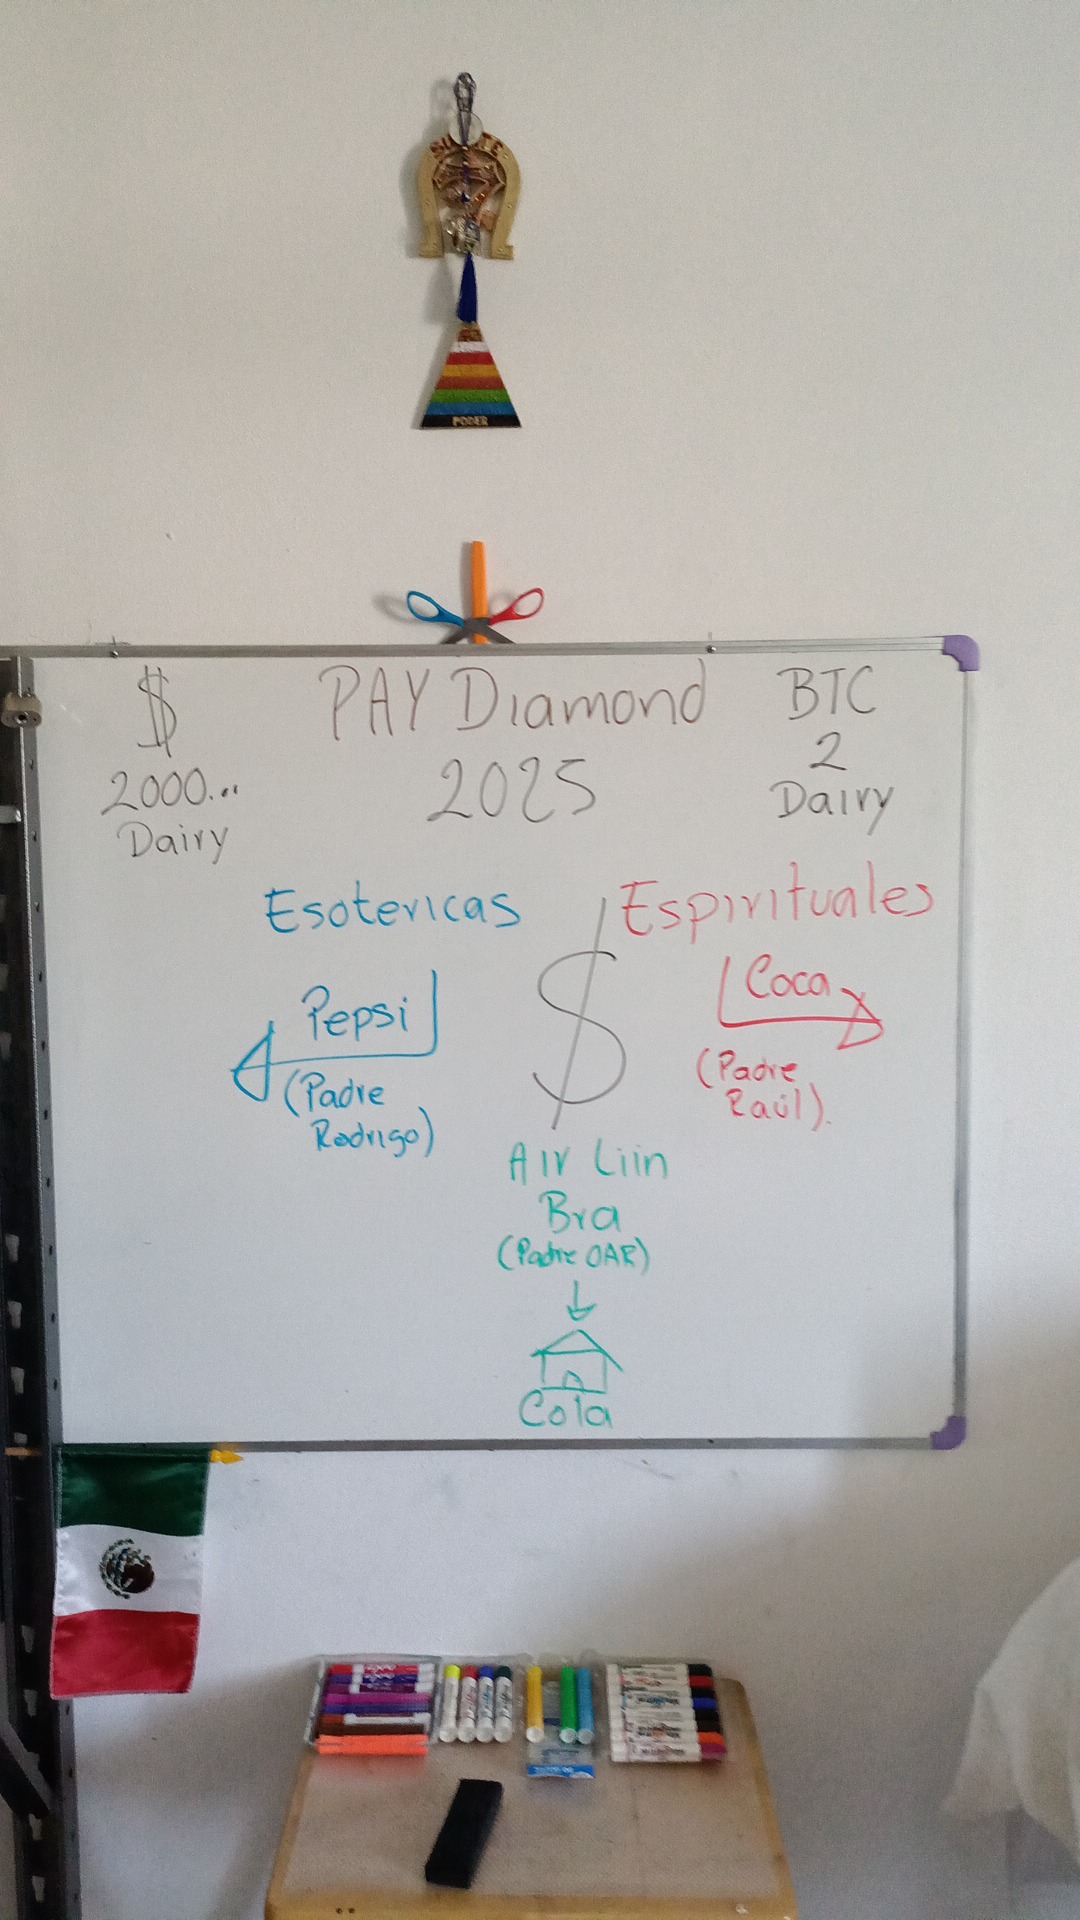 SUERTE
PODER
$ PAY Diamond BTC
2000... 2025 2
Dairy Dairy
Esotericas Espirituales
$
Pepsi Coca
(Padre (Padre
Rodrigo) Raúl).
Air Liin
Bra
(Padre OAR)
Cola